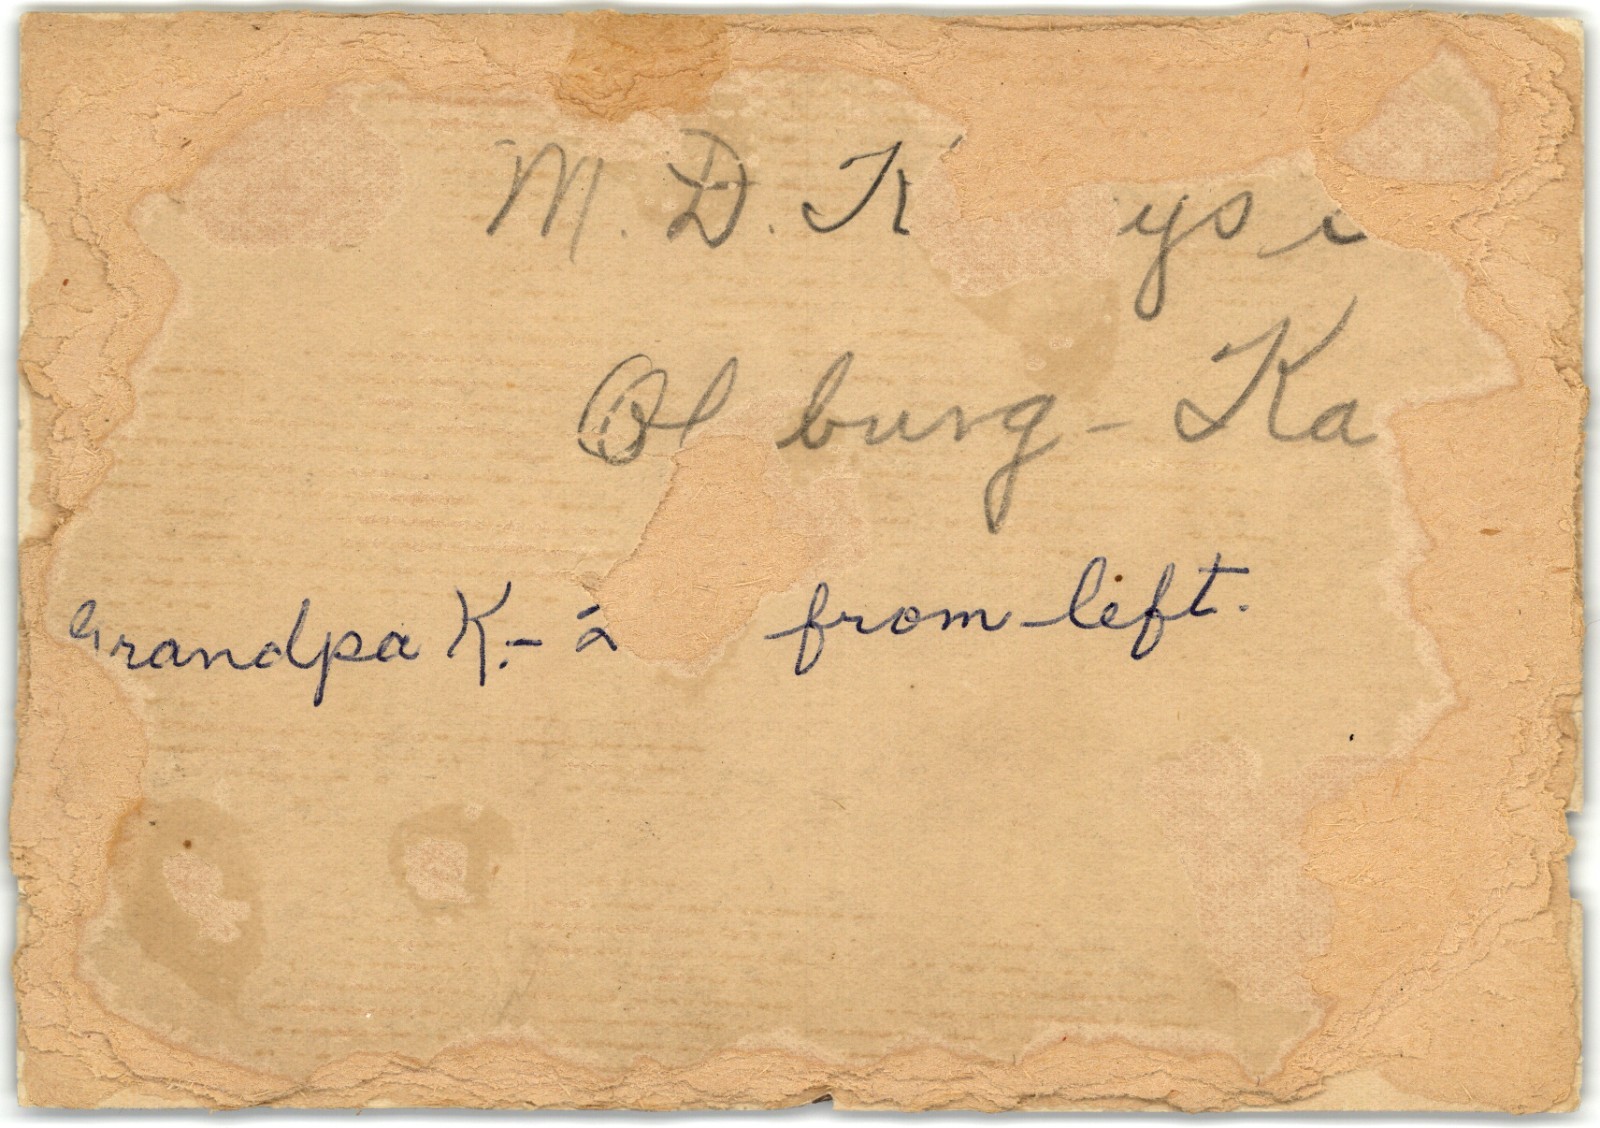 M. D. K ys
Ol burg - Ka
Grandpa K. - 2 from left.